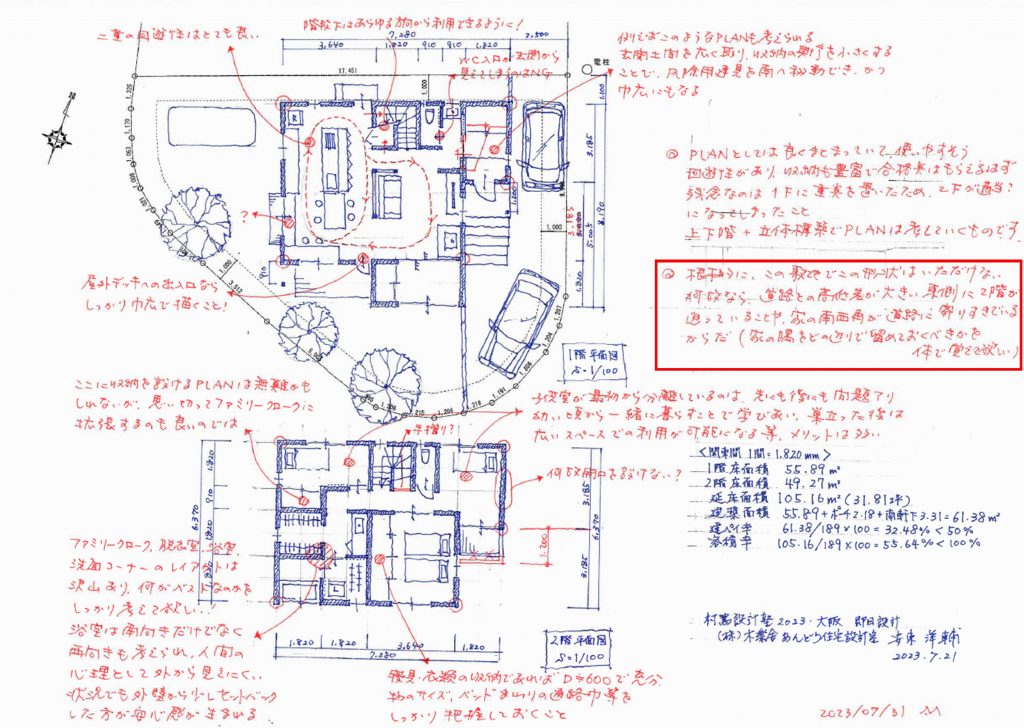 二重の回遊性はとても良い
階段下はあらゆる方向から利用できるように!
WC入口が玄関から
見えてしまうのはNG
例えばこのようなPLANも考えられる
玄関土間を広く取り、収納の奥行を小さくする
ことで、風除用建具を南へ移動でき、かつ
巾広にもなる
7.280
3.640
1.820
910
910
1.820
2.500
17.451
電柱
1.000
3.185
1.000
◎ PLANとしては良くまとまっていて、使いやすそう
回遊性があり、収納も豊富で合格点はもらえるはず
残念なのは1Fに重点を置いたため、2Fが適当?
になってしまったこと
上下階+立体構築でPLANは考えていくものです
◎ 根本的に、この敷地でこの形状はいただけない
何故なら、道路との高低差が大きい東側に2階が
迫っていることや、家の南西角が道路に寄りすぎている
からだ(家の隅をどの辺りで留めておくべきかを
体で覚えて欲しい)
?
屋外デッキへの出入口なら
しっかり巾広で描くこと!
910
3.812
1.000
1階平面図
S=1/100
ここに収納を設けるPLANは無難かも
しれないが、思い切ってファミリークロークに
拡張するのも良いのでは
手摺り?
子供室が最初から分離しているのは、先にも後にも問題アリ
幼い頃から一緒に暮らすことで学びあい、巣立った後は
広いスペースでの利用が可能になる等、メリットは多い
何故開口を設けない?
<関東間 1間=1.820mm>
1階床面積 55.89㎡
2階床面積 49.27㎡
延床面積 105.16㎡(31.81坪)
建築面積 55.89+ポーチ2.18+南軒下3.31=61.38㎡
建ペイ率 61.38/189×100=32.48%<50%
容積率 105.16/189×100=55.64%<100%
1.820
910
1.820
6.370
3.185
3.185
6.370
1.200
ファミリークローク、脱衣室、浴室、
洗面コーナーのレイアウトは
沢山あり、何がベストなのかを
しっかり考えて欲しい!
浴室は南向きだけでなく
西向きも考えられ、人間の
心理として外から見えにくい
状況でも外壁から少しセットバック
した方が安心感が生まれる
1.820
1.820
3.640
7.280
2階平面図
S=1/100
寝具・衣類の収納であればD≒600で充分
物のサイズ、ベッドまわりの通路巾等を
しっかり把握しておくこと
村嶌設計塾2023・大阪 即日設計
(株)木繋舎あんどう住宅設計室 安東洋輔
2023.7.21
2023/07/31